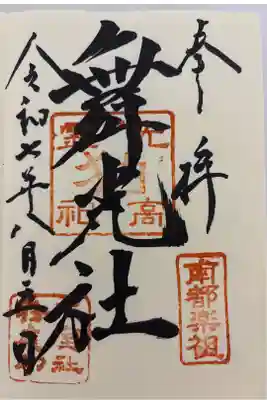 奉拝
南都楽祖
舞光社
令和七年八月五日